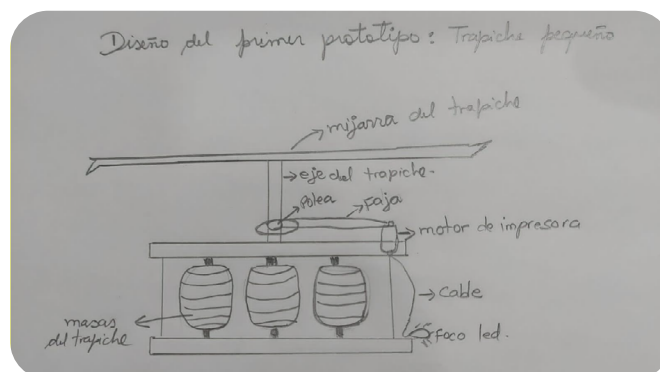 Diseño del primer prototipo: Trapiche pequeño
mijarra del trapiche
eje del trapiche.
Polea
Faja
motor de impresora
cable
masas
del trapiche
foco led.